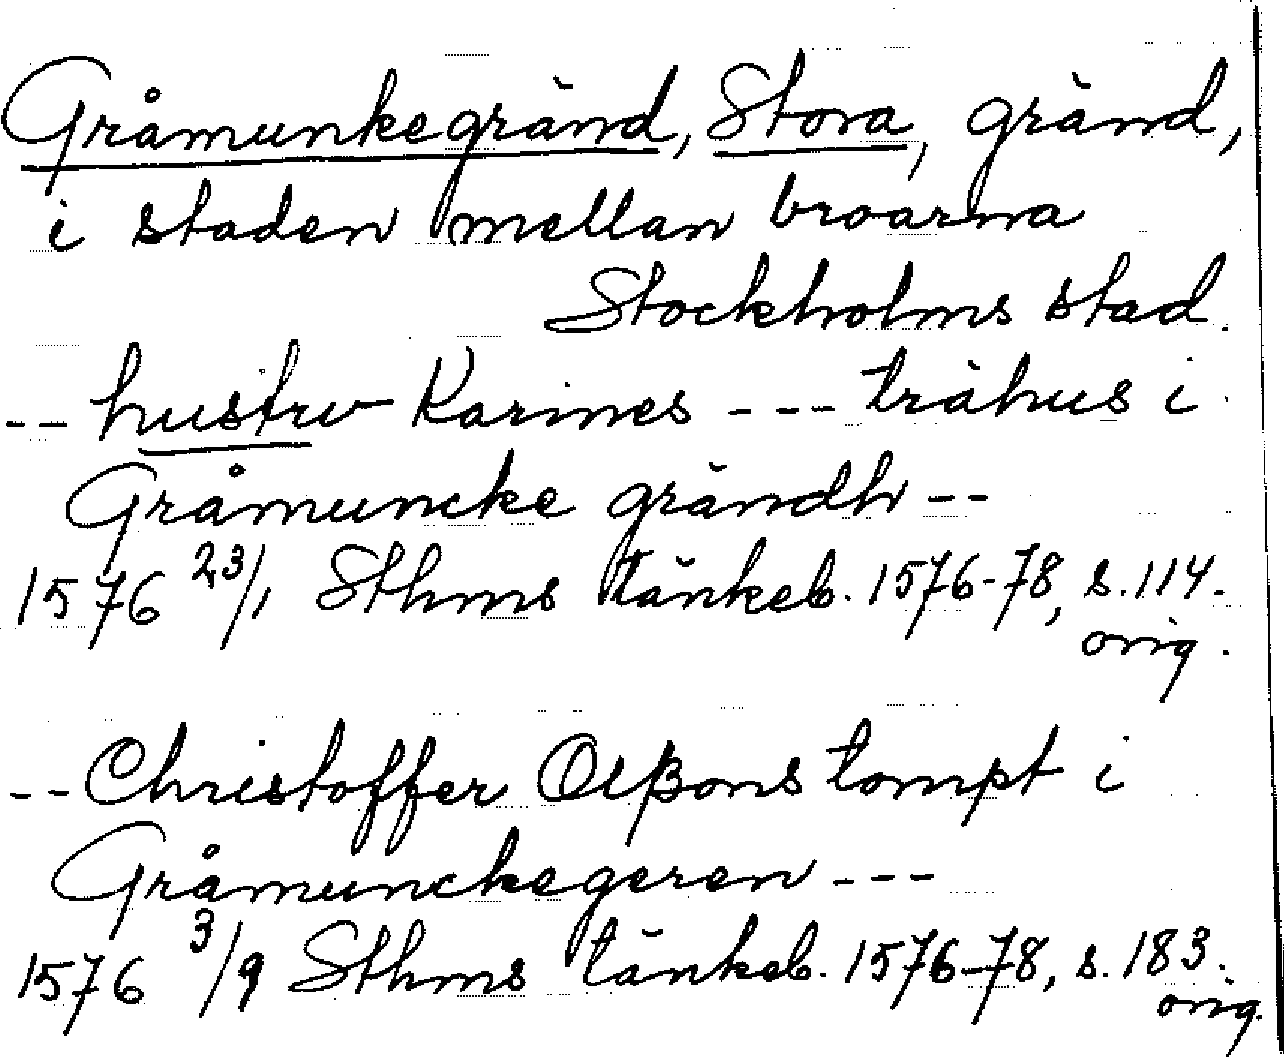 Gråmunkegränd, Stora, gränd,
i staden mellan broarna
Stockholms stad.
-- hustru Karines --- trähus i
Gråmuncke grändh --
1576 23/1 Sthms tänkeb. 1576-78, s. 114.
orig.
-- Christoffer Olßons tompt i
Gråmunckegeren ---
1576 3/9 Sthms tänkeb. 1576-78, s. 183.
orig.